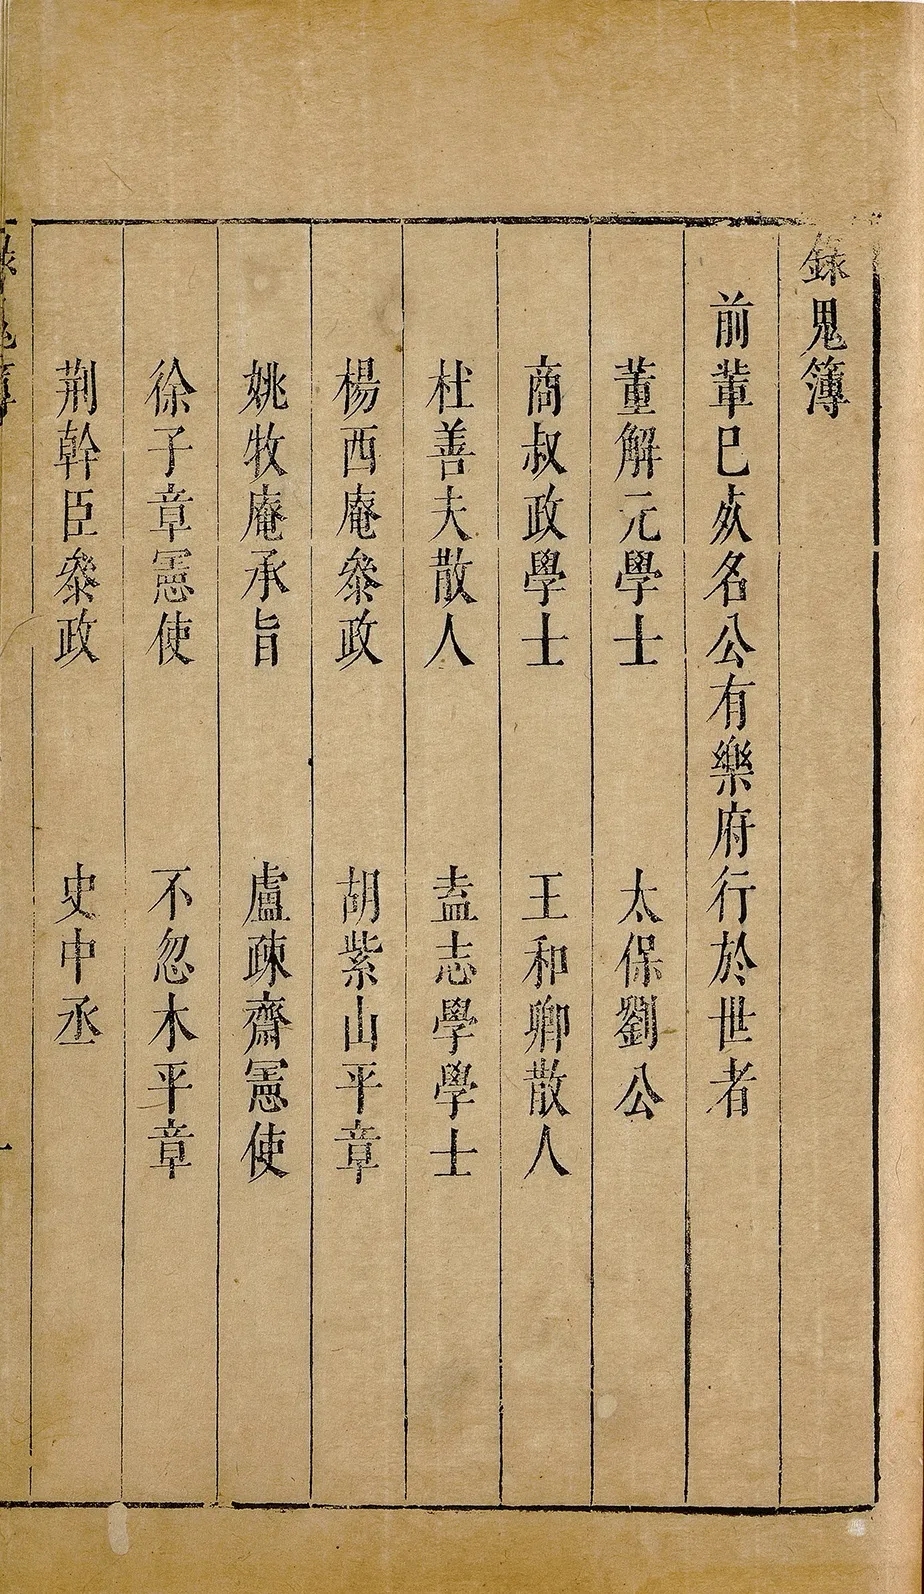 錄鬼簿
前輩已死名公有樂府行於世者
董解元學士　太保劉公
商叔政學士　王和卿散人
杜善夫散人　盍志學學士
楊西庵叅政　胡紫山平章
姚牧庵承旨　盧疎齋憲使
徐子章憲使　不忽木平章
荆幹臣叅政　史中丞